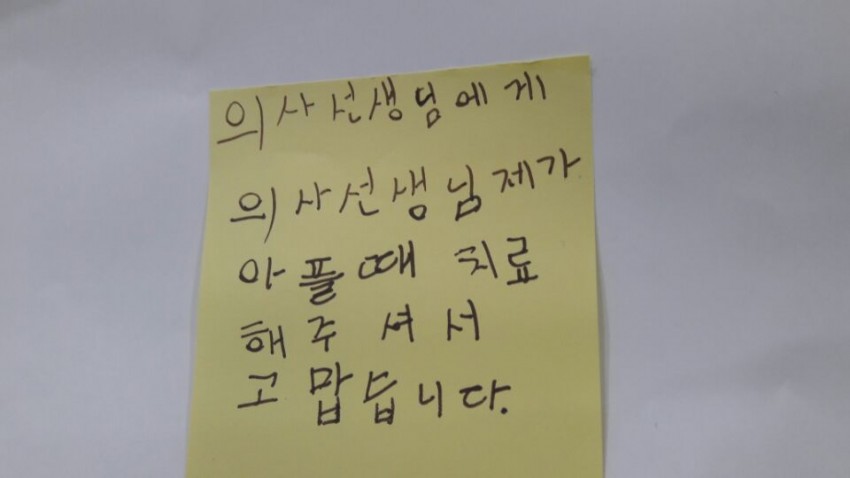 의사선생님에게
의사선생님제가
아플때 치료
해주셔서
고맙습니다.